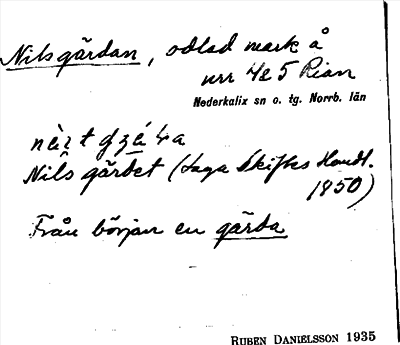 Nilsgärdan, odlad mark å
nrr 4 å 5 Rian
Nederkalix sn o. tg. Norrb. län
Nils gärdet (Laga Skiftes Handl.
1850)
Från början en gärda
RUBEN DANIELSSON 1935